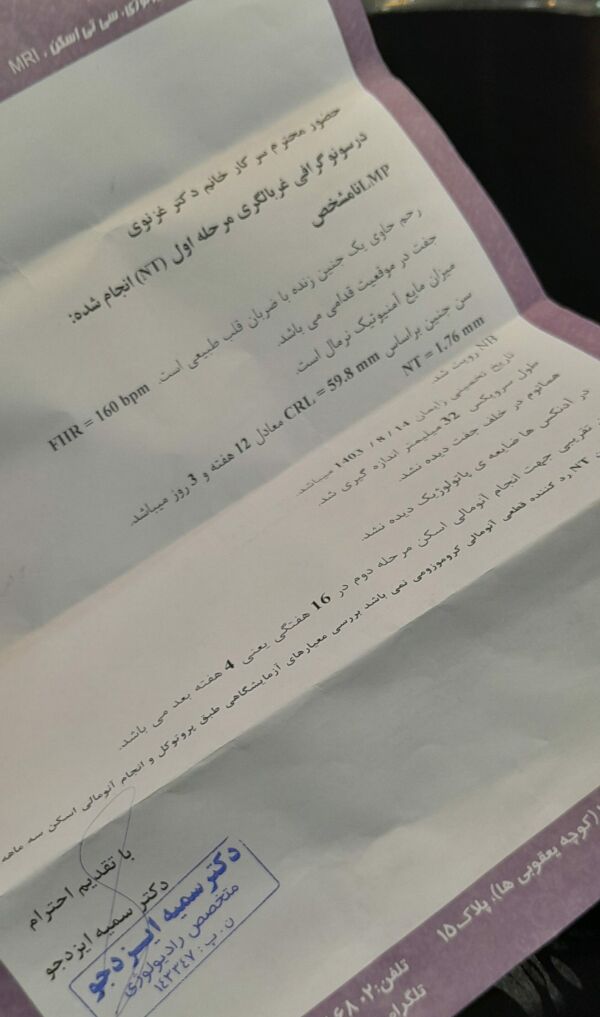 سی تی اسکن، MRI
حضور محترم سرکار خانم دکتر غزنوی
درسونوگرافی غربالگری مرحله اول (NT) انجام شده:
LMPنامشخص
رحم حاوی یک جنین زنده با ضربان قلب طبیعی است. FHR = 160 bpm
جفت در موقعیت قدامی می باشد.
میزان مایع آمنیوتیک نرمال است.
سن جنین براساس CRL = 59.8 mm معادل 12 هفته و 3 روز میباشد.
NT = 1.76 mm
NB رویت شد.
تاریخ تخمینی زایمان 1403 / 8 / 14 میباشد.
طول سرویکس 32 میلیمتر اندازه گیری شد.
هماتوم در خلف جفت دیده نشد.
در ادنکس ها ضایعه ی پاتولوژیک دیده نشد.
تقریبی جهت انجام آنومالی اسکن مرحله دوم در 16 هفتگی یعنی 4 هفته بعد می باشد.
NT رد کننده قطعی آنومالی کروموزومی نمی باشد بررسی معیارهای آزمایشگاهی طبق پروتوکل و انجام آنومالی اسکن سه ماهه
با تقدیم احترام
دکتر سمیه ایزدجو
دکتر سمیه ایزدجو
متخصص رادیولوژی
ن.پ: ۱۴۲۳۴۷
(کوچه یعقوبی ها)، پلاک ۱۵
تلفن: ۰۲